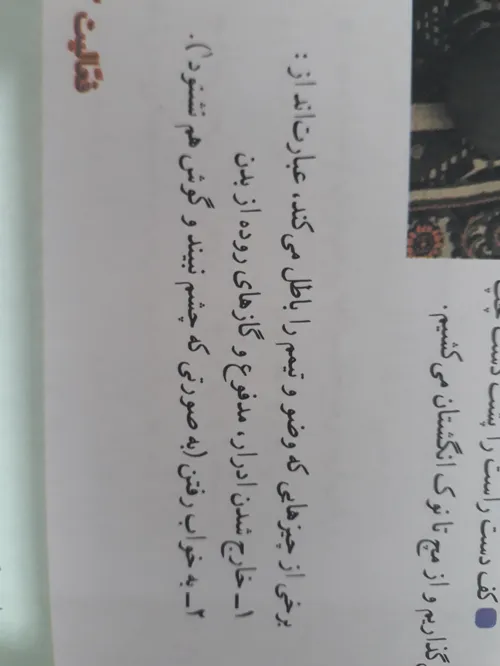 کف دست راست را پشت دست چپ
گذاریم و از مچ تا نوک انگشتان می‌کشیم.
برخی از چیزهایی که وضو و تیمم را باطل می‌کند، عبارت‌اند از :
۱ـ خارج شدن ادرار، مدفوع و گازهای روده از بدن
۲ـ به خواب رفتن (به صورتی که چشم نبیند و گوش هم نشنود۱).
فعّالیت